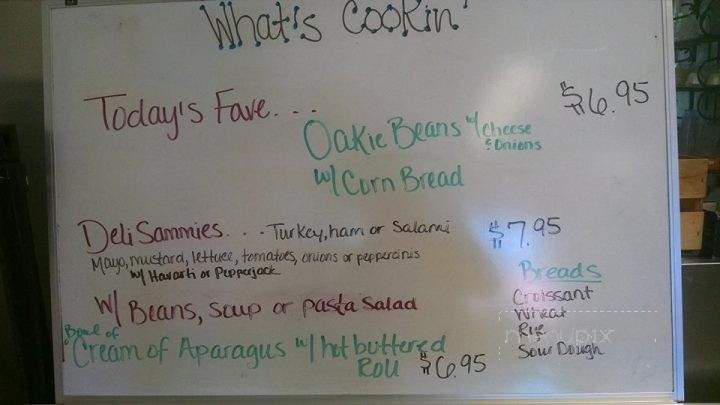 What's Cookin'
Today's Fave. . . $6.95
Oakie Beans w/ cheese
& Onions
w/ Corn Bread
Deli Sammies. . . . Turkey, ham or Salami $7.95
Mayo, mustard, lettuce, tomatoes, onions or peppercinis
w/ Havarti or Pepperjack
Breads
Croissant
Wheat
Rye
Sour Dough
w/ Beans, soup or pasta Salad
Bowl of
Cream of Aparagus w/ hot buttered
Roll $6.95